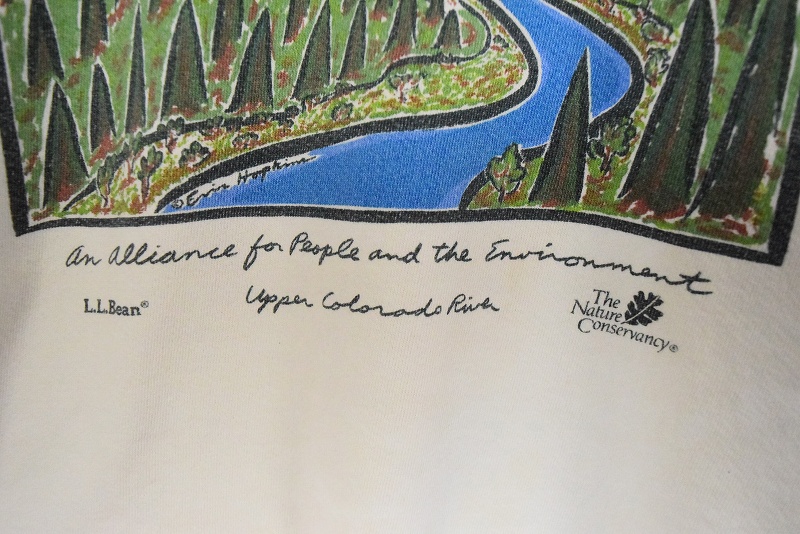 © Erin Hopkins
An Alliance for People and the Environment
L.L.Bean®
Upper Colorado River
The
Nature
Conservancy®